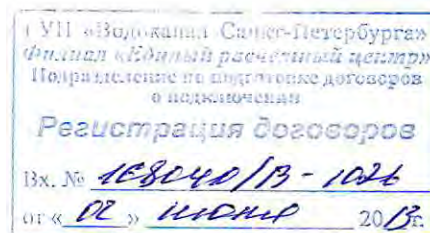 ГУП «Водоканал Санкт-Петербурга»
Филиал «Единый расчетный центр»
Подразделение по подготовке договоров
о подключении
Регистрация договоров
Вх. №
от « 02 » июня 2013г.